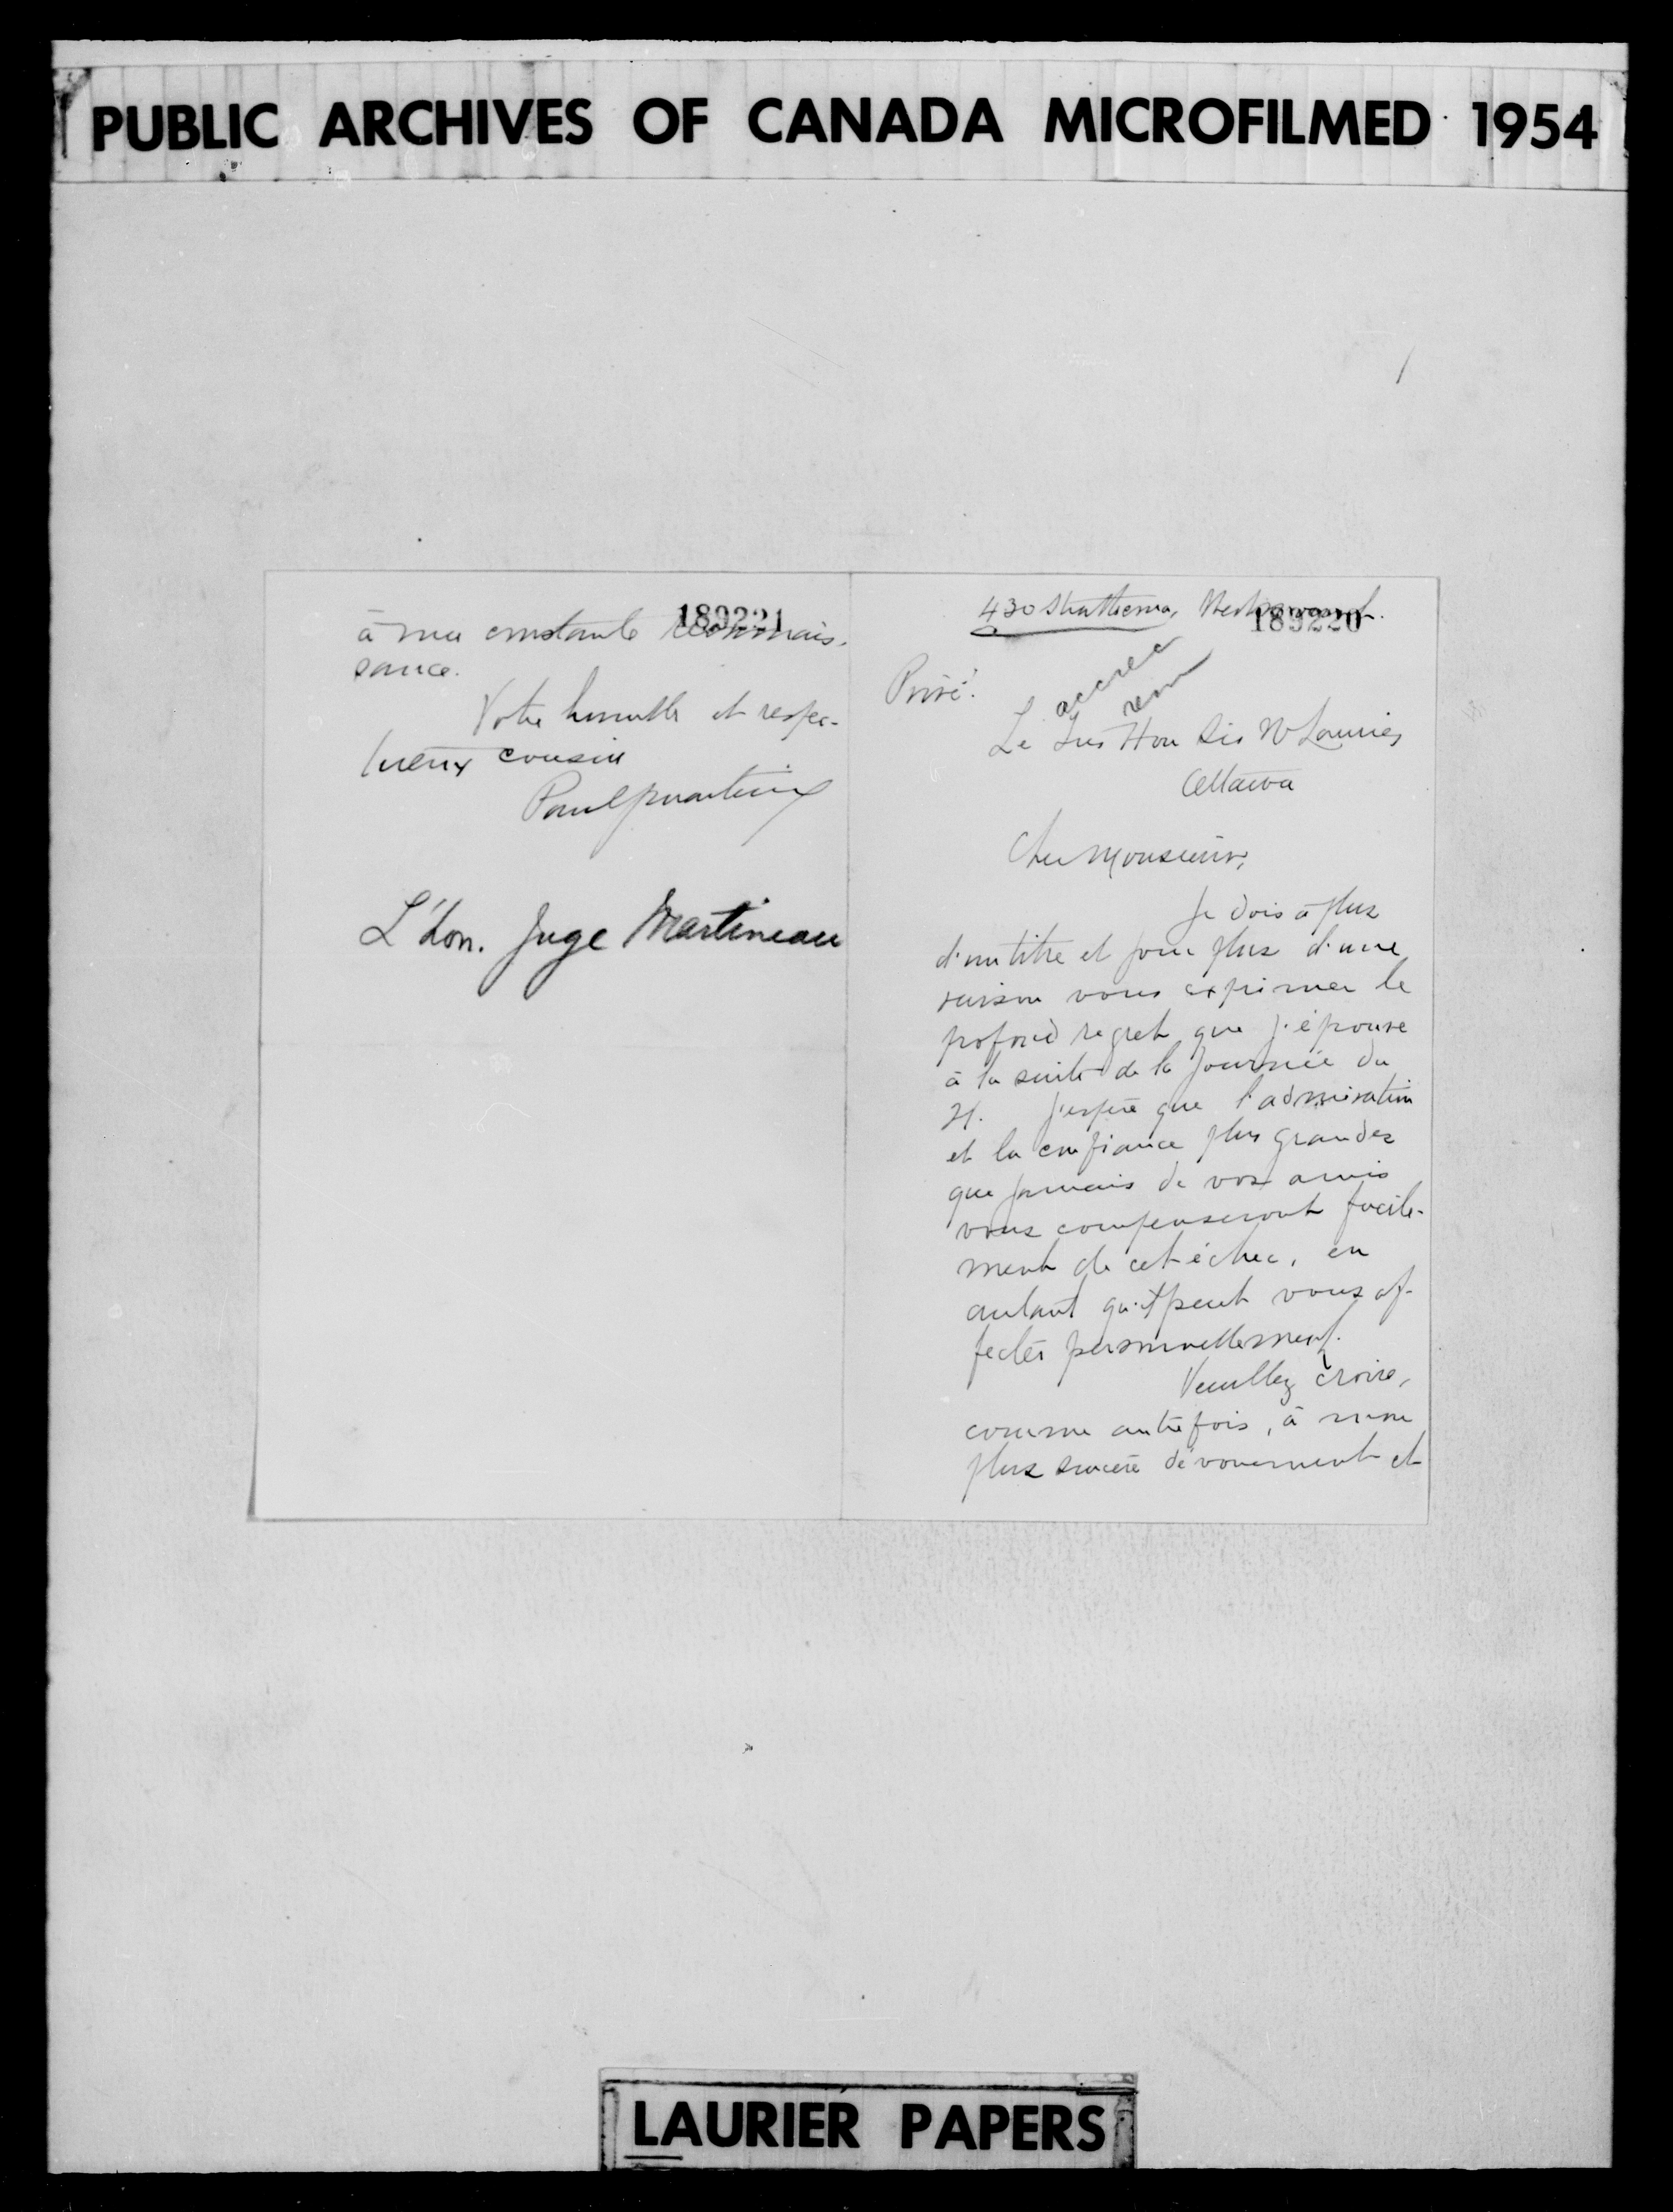 PUBLIC ARCHIVES OF CANADA MICROFILMED 1954
430 Strathcona, Westmount.
189220
Privé.
accuse
Le Tres Hon Sir W Laurier
Ottawa
Cher Monsieur,
Je dois à plus
d'un titre et pour plus d'une
raison vous exprimer le
profond regret que j'éprouve
à la suite de la journée du
21. J'espère que l'admiration
et la confiance plus grandes
que jamais de vos amis
vous compenseront facile-
ment de cet échec, en
autant qu'il peut vous af-
fecter personnellement.
Veuillez croire,
comme autrefois, à mon
plus sincère dévouement et
189221
à ma constante reconnais-
sance.
Votre humble et respec-
tueux cousin
Paul Martineau
L'hon. Juge Martineau
LAURIER PAPERS